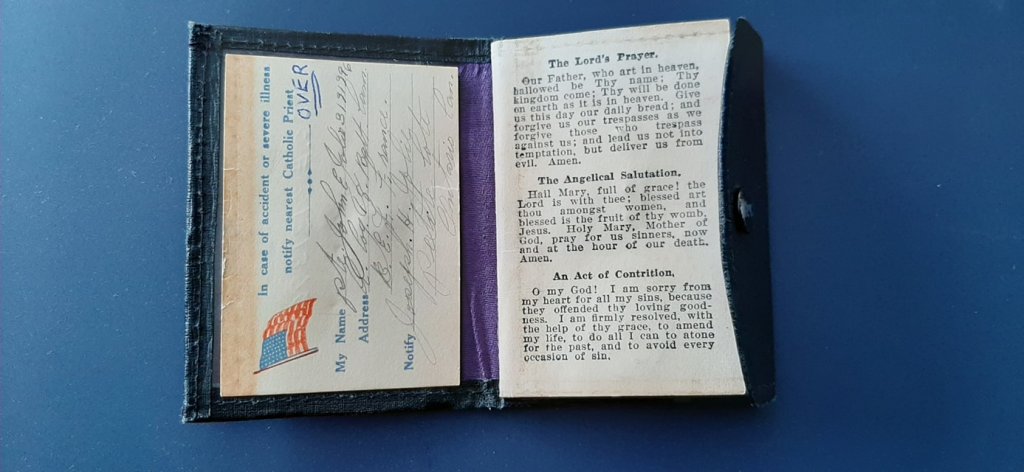 In case of accident or severe illness
notify nearest Catholic Priest
OVER
My Name Pvt John E
Address
Notify
The Lord's Prayer.
Our Father, who art in heaven,
hallowed be Thy name; Thy
kingdom come; Thy will be done
on earth as it is in heaven. Give
us this day our daily bread; and
forgive us our trespasses as we
forgive those who trespass
against us; and lead us not into
temptation, but deliver us from
evil. Amen.
The Angelical Salutation.
Hail Mary, full of grace! the
Lord is with thee; blessed art
thou amongst women, and
blessed is the fruit of thy womb,
Jesus. Holy Mary, Mother of
God, pray for us sinners, now
and at the hour of our death.
Amen.
An Act of Contrition.
O my God! I am sorry from
my heart for all my sins, because
they offended thy loving good-
ness. I am firmly resolved, with
the help of thy grace, to amend
my life, to do all I can to atone
for the past, and to avoid every
occasion of sin.